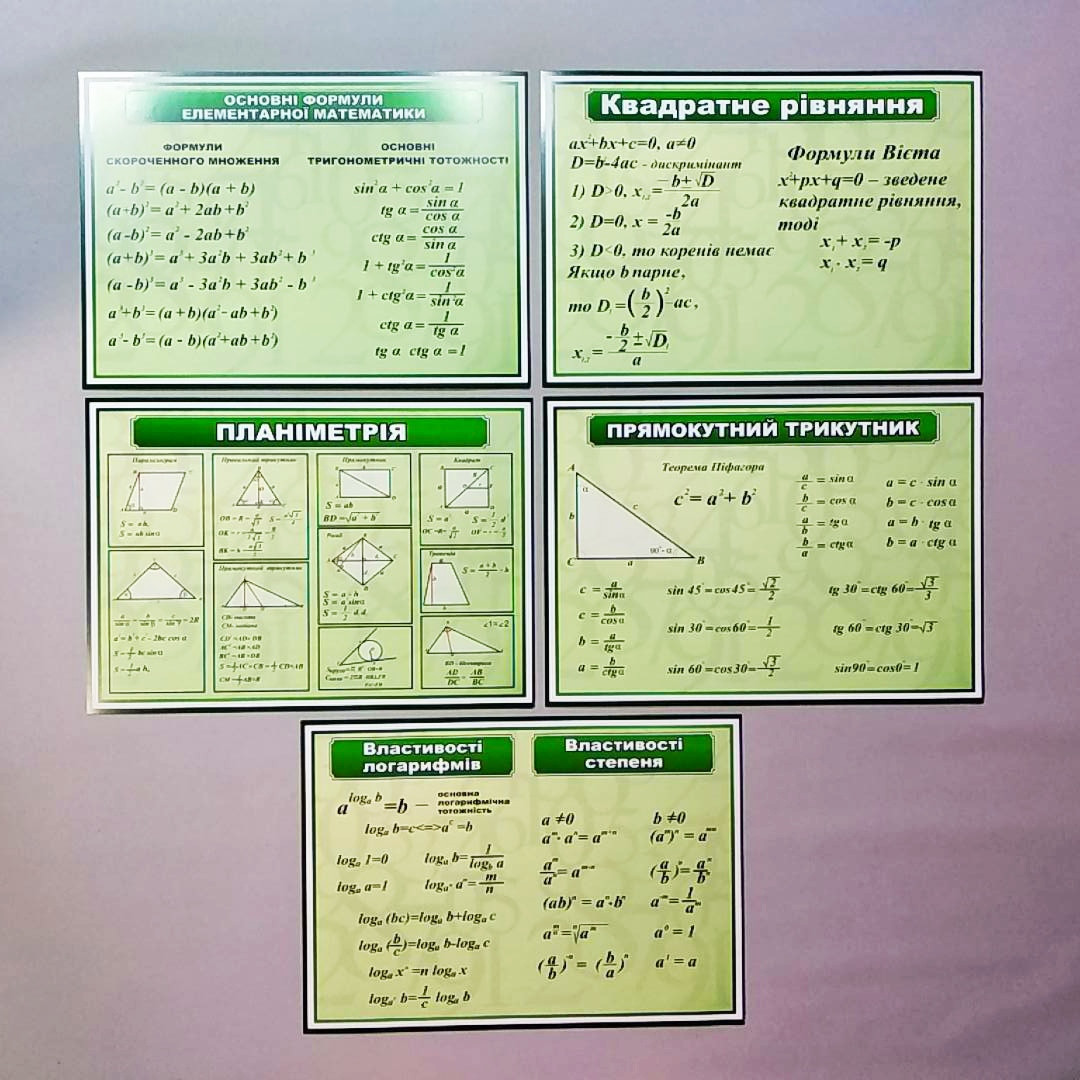 ОСНОВНІ ФОРМУЛИ
ЕЛЕМЕНТАРНОЇ МАТЕМАТИКИ
ФОРМУЛИ
СКОРОЧЕННОГО МНОЖЕННЯ
a²- b²= (a - b)(a + b)
(a+b)²= a²+ 2ab+b²
(a-b)²= a² - 2ab+b²
(a+b)³= a³+ 3a²b + 3ab²+ b³
(a-b)³= a³ - 3a²b + 3ab² - b³
a³+b³= (a+b)(a²- ab+b²)
a³- b³= (a - b)(a²+ab+b²)
ОСНОВНІ
ТРИГОНОМЕТРИЧНІ ТОТОЖНОСТІ
sin²α + cos²α = 1
tg α = sin α / cos α
ctg α = cos α / sin α
1 + tg²α = 1 / cos²α
1 + ctg²α = 1 / sin²α
ctg α = 1 / tg α
tg α ctg α =1
Квадратне рівняння
ax²+bx+c=0, a≠0
D=b²-4ac - дискримінант
1) D>0, x₁,₂= -b±√D / 2a
2) D=0, x = -b / 2a
3) D<0, то коренів немає
Якщо b парне,
то D₁=(b/2)²-ac,
x₁,₂= -b/2±√D₁ / a
Формули Вієта
x²+px+q=0 – зведене
квадратне рівняння,
тоді
x₁+ x₂= -p
x₁· x₂= q
ПЛАНІМЕТРІЯ
Паралелограм
S = ah,
S = ab sin α
Правильний трикутник
Прямокутник
S = ab
BD=√a²+b²
Квадрат
Ромб
S = a·h
S = a² sin α
Трапеція
S = a+b / 2 · h
a / sin α = b / sin β = c / sin γ = 2R
a²=b²+c² - 2bc cos α
S=1/2 bc sin α
S=1/2 a hₐ
Прямокутний трикутник
CD- висота
CM- медіана
CD²=AD·DB
AC²=AB·AD
BC²=AB·DB
S=1/2 AC·CB=1/2 CD·AB
∠1=∠2
BD - бісектриса
AD / DC = AB / BC
ПРЯМОКУТНИЙ ТРИКУТНИК
A
α
b
c
C
a
90°-α
B
Теорема Піфагора
c²= a²+ b²
a/c = sin α
b/c = cos α
a/b = tg α
b/a = ctg α
a = c · sin α
b = c · cos α
a = b · tg α
b = a · ctg α
c = a / sin α
c = b / cos α
b = a / tg α
a = b / ctg α
sin 45°=cos 45°= √2 / 2
sin 30°=cos 60°= 1 / 2
sin 60°=cos 30°= √3 / 2
tg 30°=ctg 60°= √3 / 3
tg 60°=ctg 30°=√3
sin90°=cos0°= 1
Властивості
логарифмів
a^logₐ b =b —
основна
логарифмічна
тотожність
logₐ b=c<=>aᶜ =b
logₐ 1=0
logₐ b= 1 / log_b a
logₐ a=1
logₐⁿ aᵐ= m / n
logₐ (bc)=logₐ b+logₐ c
logₐ (b/c)=logₐ b-logₐ c
logₐ xⁿ =n logₐ x
logₐᶜ b= 1/c logₐ b
Властивості
степеня
a ≠0
aᵐ· aⁿ= aᵐ⁺ⁿ
aᵐ / aⁿ = aᵐ⁻ⁿ
(ab)ⁿ = aⁿ·bⁿ
a^(m/n) = ⁿ√aᵐ
(a/b)⁻ⁿ = (b/a)ⁿ
b ≠0
(aᵐ)ⁿ = aᵐⁿ
(a/b)ⁿ= aⁿ / bⁿ
a⁻ᵐ= 1 / aᵐ
a⁰ = 1
a¹ = a